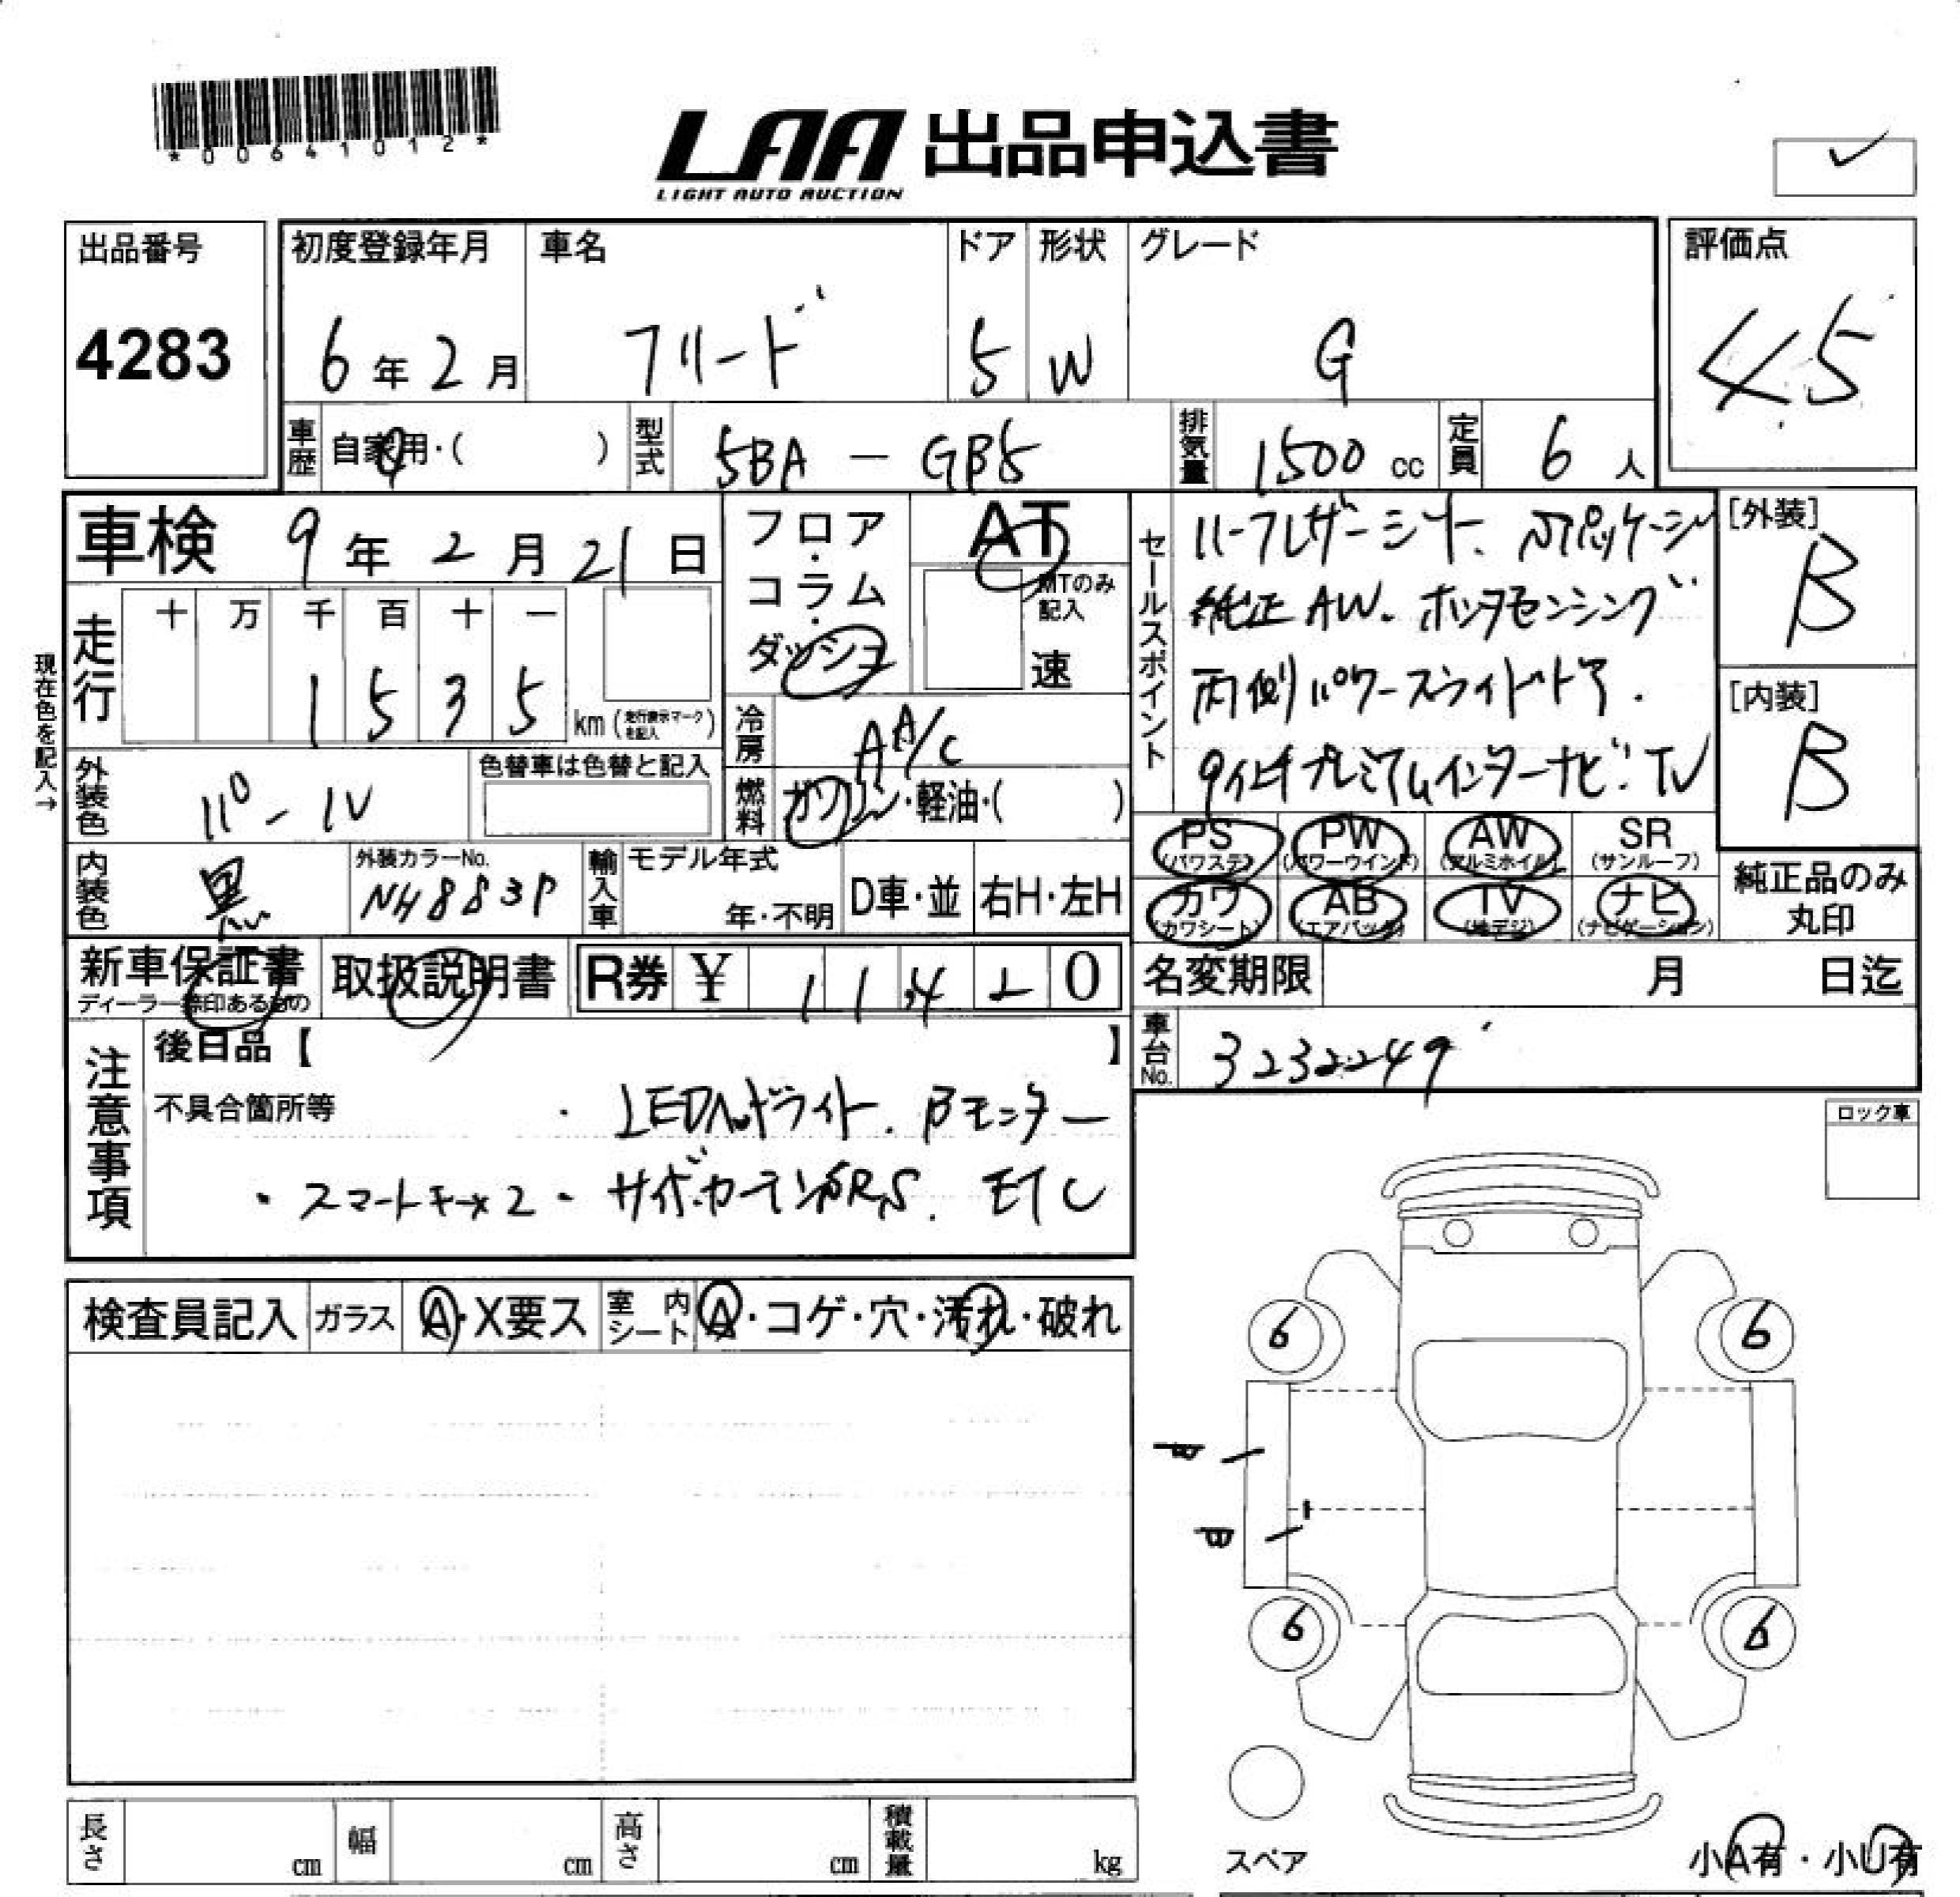 *00641012*
LAA 出品申込書
LIGHT AUTO AUCTION
出品番号
4283
初度登録年月
6年2月
車名
フリード
ドア
5
形状
W
グレード
G
評価点
4.5
車歴
自家用・( )
型式
5BA - GB5
排気量
1500 cc
定員
6人
車検 9年2月21日
フロア・コラム・ダッシュ
AT
MTのみ記入
速
走行
十 万 千 百 十 一
1 5 3 5 km (走行表示マークを記入)
現在色を記入→
冷房
AA/C
燃料
ガソリン・軽油・( )
外装色
パール
色替車は色替と記入
内装色
黒
外装カラーNo.
NH883P
輸入車
モデル年式
年・不明
D車・並
右H・左H
セールスポイント
ハーフレザーシート、パッケージ
純正AW. ホンダセンシング
両側パワースライドドア.
9インチプレミアムインターナビ・TV
[外装]
B
[内装]
B
PS (パワステ)
PW (パワーウインド)
AW (アルミホイル)
SR (サンルーフ)
カワ (カワシート)
AB (エアバック)
TV (地デジ)
ナビ (ナビゲーション)
純正品のみ丸印
新車保証書
ディーラー捺印あるもの
取扱説明書
R券 ¥ 11,420
名変期限 月 日迄
車台No.
3232249
注意事項
後日品【 】
不具合箇所等
・LEDヘッドライト. Bモニター
・スマートキーx2・サイド.カーテンSRS. ETC
ロック車
検査員記入
ガラス
A・X要ス
室内シート
A・コゲ・穴・汚れ・破れ
6
6
6
6
長さ cm
幅 cm
高さ cm
積載量 kg
スペア
小A有・小U有